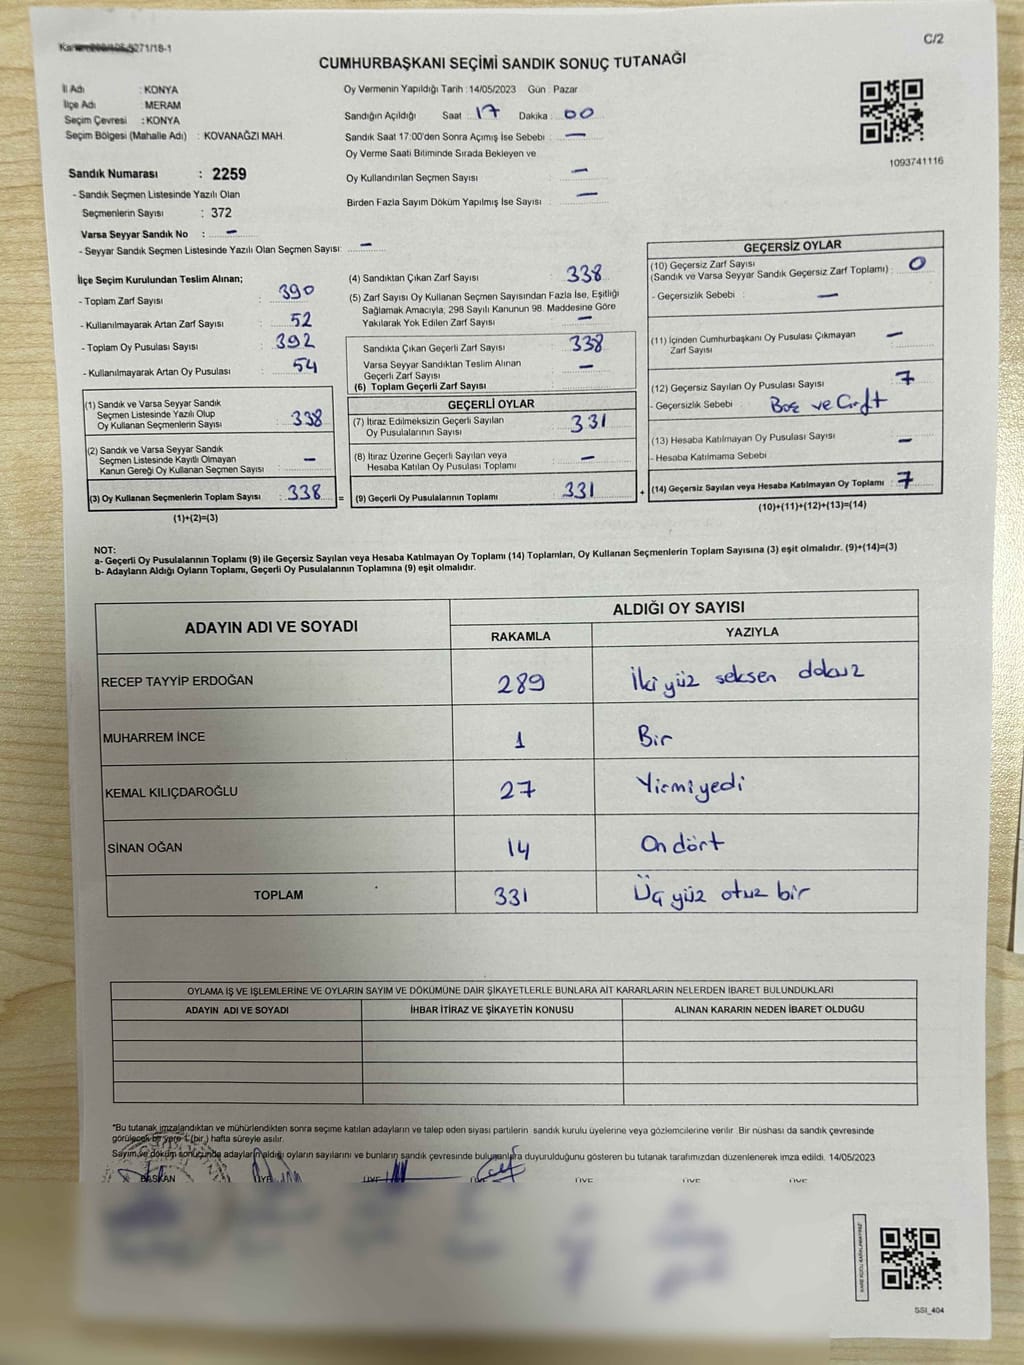 C/2
CUMHURBAŞKANI SEÇİMİ SANDIK SONUÇ TUTANAĞI
İl Adı : KONYA
İlçe Adı : MERAM
Seçim Çevresi : KONYA
Seçim Bölgesi (Mahalle Adı) : KOVANAĞZI MAH.
Sandık Numarası : 2259
- Sandık Seçmen Listesinde Yazılı Olan
Seçmenlerin Sayısı : 372
Varsa Seyyar Sandık No : -
- Seyyar Sandık Seçmen Listesinde Yazılı Olan Seçmen Sayısı: -
Oy Vermenin Yapıldığı Tarih : 14/05/2023 Gün : Pazar
Sandığın Açıldığı Saat : 17 Dakika : 00
Sandık Saat 17:00'den Sonra Açımış İse Sebebi : -
Oy Verme Saati Bitiminde Sırada Bekleyen ve
Oy Kullandırılan Seçmen Sayısı : -
Birden Fazla Sayım Döküm Yapılmış İse Sayısı : -
1093741116
İlçe Seçim Kurulundan Teslim Alınan;
- Toplam Zarf Sayısı : 390
- Kullanılmayarak Artan Zarf Sayısı : 52
- Toplam Oy Pusulası Sayısı : 392
- Kullanılmayarak Artan Oy Pusulası : 54
(1) Sandık ve Varsa Seyyar Sandık
Seçmen Listesinde Yazılı Olup
Oy Kullanan Seçmenlerin Sayısı : 338
(2) Sandık ve Varsa Seyyar Sandık
Seçmen Listesinde Kayıtlı Olmayan
Kanun Gereği Oy Kullanan Seçmen Sayısı : -
(3) Oy Kullanan Seçmenlerin Toplam Sayısı : 338 =
(1)+(2)=(3)
(4) Sandıktan Çıkan Zarf Sayısı : 338
(5) Zarf Sayısı Oy Kullanan Seçmen Sayısından Fazla İse, Eşitliği
Sağlamak Amacıyla; 298 Sayılı Kanunun 98. Maddesine Göre
Yakılarak Yok Edilen Zarf Sayısı : -
Sandıkta Çıkan Geçerli Zarf Sayısı : 338
Varsa Seyyar Sandıktan Teslim Alınan
Geçerli Zarf Sayısı : -
(6) Toplam Geçerli Zarf Sayısı :
GEÇERLİ OYLAR
(7) İtiraz Edilmeksizin Geçerli Sayılan
Oy Pusulalarının Sayısı : 331
(8) İtiraz Üzerine Geçerli Sayılan veya
Hesaba Katılan Oy Pusulası Toplamı : -
(9) Geçerli Oy Pusulalarının Toplamı : 331 +
GEÇERSİZ OYLAR
(10) Geçersiz Zarf Sayısı
(Sandık ve Varsa Seyyar Sandık Geçersiz Zarf Toplamı) : 0
- Geçersizlik Sebebi : -
(11) İçinden Cumhurbaşkanı Oy Pusulası Çıkmayan
Zarf Sayısı : -
(12) Geçersiz Sayılan Oy Pusulası Sayısı : 7
- Geçersizlik Sebebi : Boş ve Çift
(13) Hesaba Katılmayan Oy Pusulası Sayısı : -
- Hesaba Katılmama Sebebi :
(14) Geçersiz Sayılan veya Hesaba Katılmayan Oy Toplamı : 7
(10)+(11)+(12)+(13)=(14)
NOT:
a- Geçerli Oy Pusulalarının Toplamı (9) ile Geçersiz Sayılan veya Hesaba Katılmayan Oy Toplamı (14) Toplamları, Oy Kullanan Seçmenlerin Toplam Sayısına (3) eşit olmalıdır. (9)+(14)=(3)
b- Adayların Aldığı Oyların Toplamı, Geçerli Oy Pusulalarının Toplamına (9) eşit olmalıdır.
ADAYIN ADI VE SOYADI
ALDIĞI OY SAYISI
RAKAMLA YAZIYLA
RECEP TAYYİP ERDOĞAN 289 İki yüz seksen dokuz
MUHARREM İNCE 1 Bir
KEMAL KILIÇDAROĞLU 27 Yirmiyedi
SİNAN OĞAN 14 On dört
TOPLAM 331 Üç yüz otuz bir
OYLAMA İŞ VE İŞLEMLERİNE VE OYLARIN SAYIM VE DÖKÜMÜNE DAİR ŞİKAYETLERLE BUNLARA AİT KARARLARIN NELERDEN İBARET BULUNDUKLARI
ADAYIN ADI VE SOYADI İHBAR İTİRAZ VE ŞİKAYETİN KONUSU ALINAN KARARIN NEDEN İBARET OLDUĞU
*Bu tutanak imzalandıktan ve mühürlendikten sonra seçime katılan adayların ve talep eden siyasi partilerin sandık kurulu üyelerine veya gözlemcilerine verilir. Bir nüshası da sandık çevresinde
görülecek bir yere 1 (bir) hafta süreyle asılır.
Sayım ve döküm sonucunda adayların aldığı oyların sayılarını ve bunların sandık çevresinde bulunanlara duyurulduğunu gösteren bu tutanak tarafımızdan düzenlenerek imza edildi. 14/05/2023
BAŞKAN ÜYE ÜYE ÜYE ÜYE ÜYE ÜYE
SSI_404